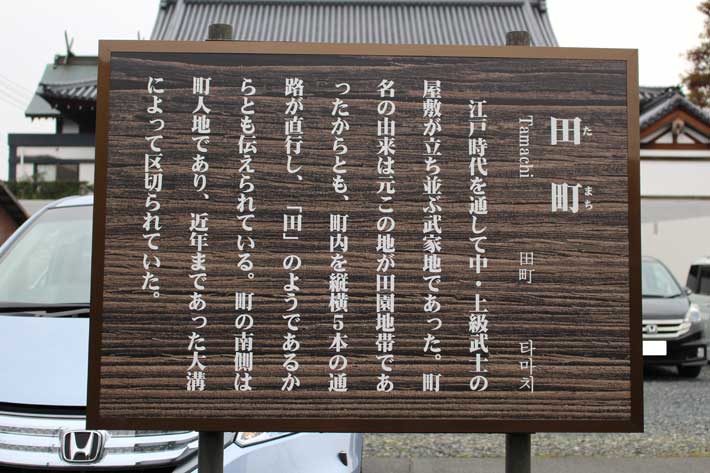 田町
たまち
Tamachi 田町 타마치
江戸時代を通して中・上級武士の
屋敷が立ち並ぶ武家地であった。町
名の由来は元この地が田園地帯であ
ったからとも、町内を縦横5本の通
路が直行し、「田」のようであるか
らとも伝えられている。町の南側は
町人地であり、近年まであった大溝
によって区切られていた。